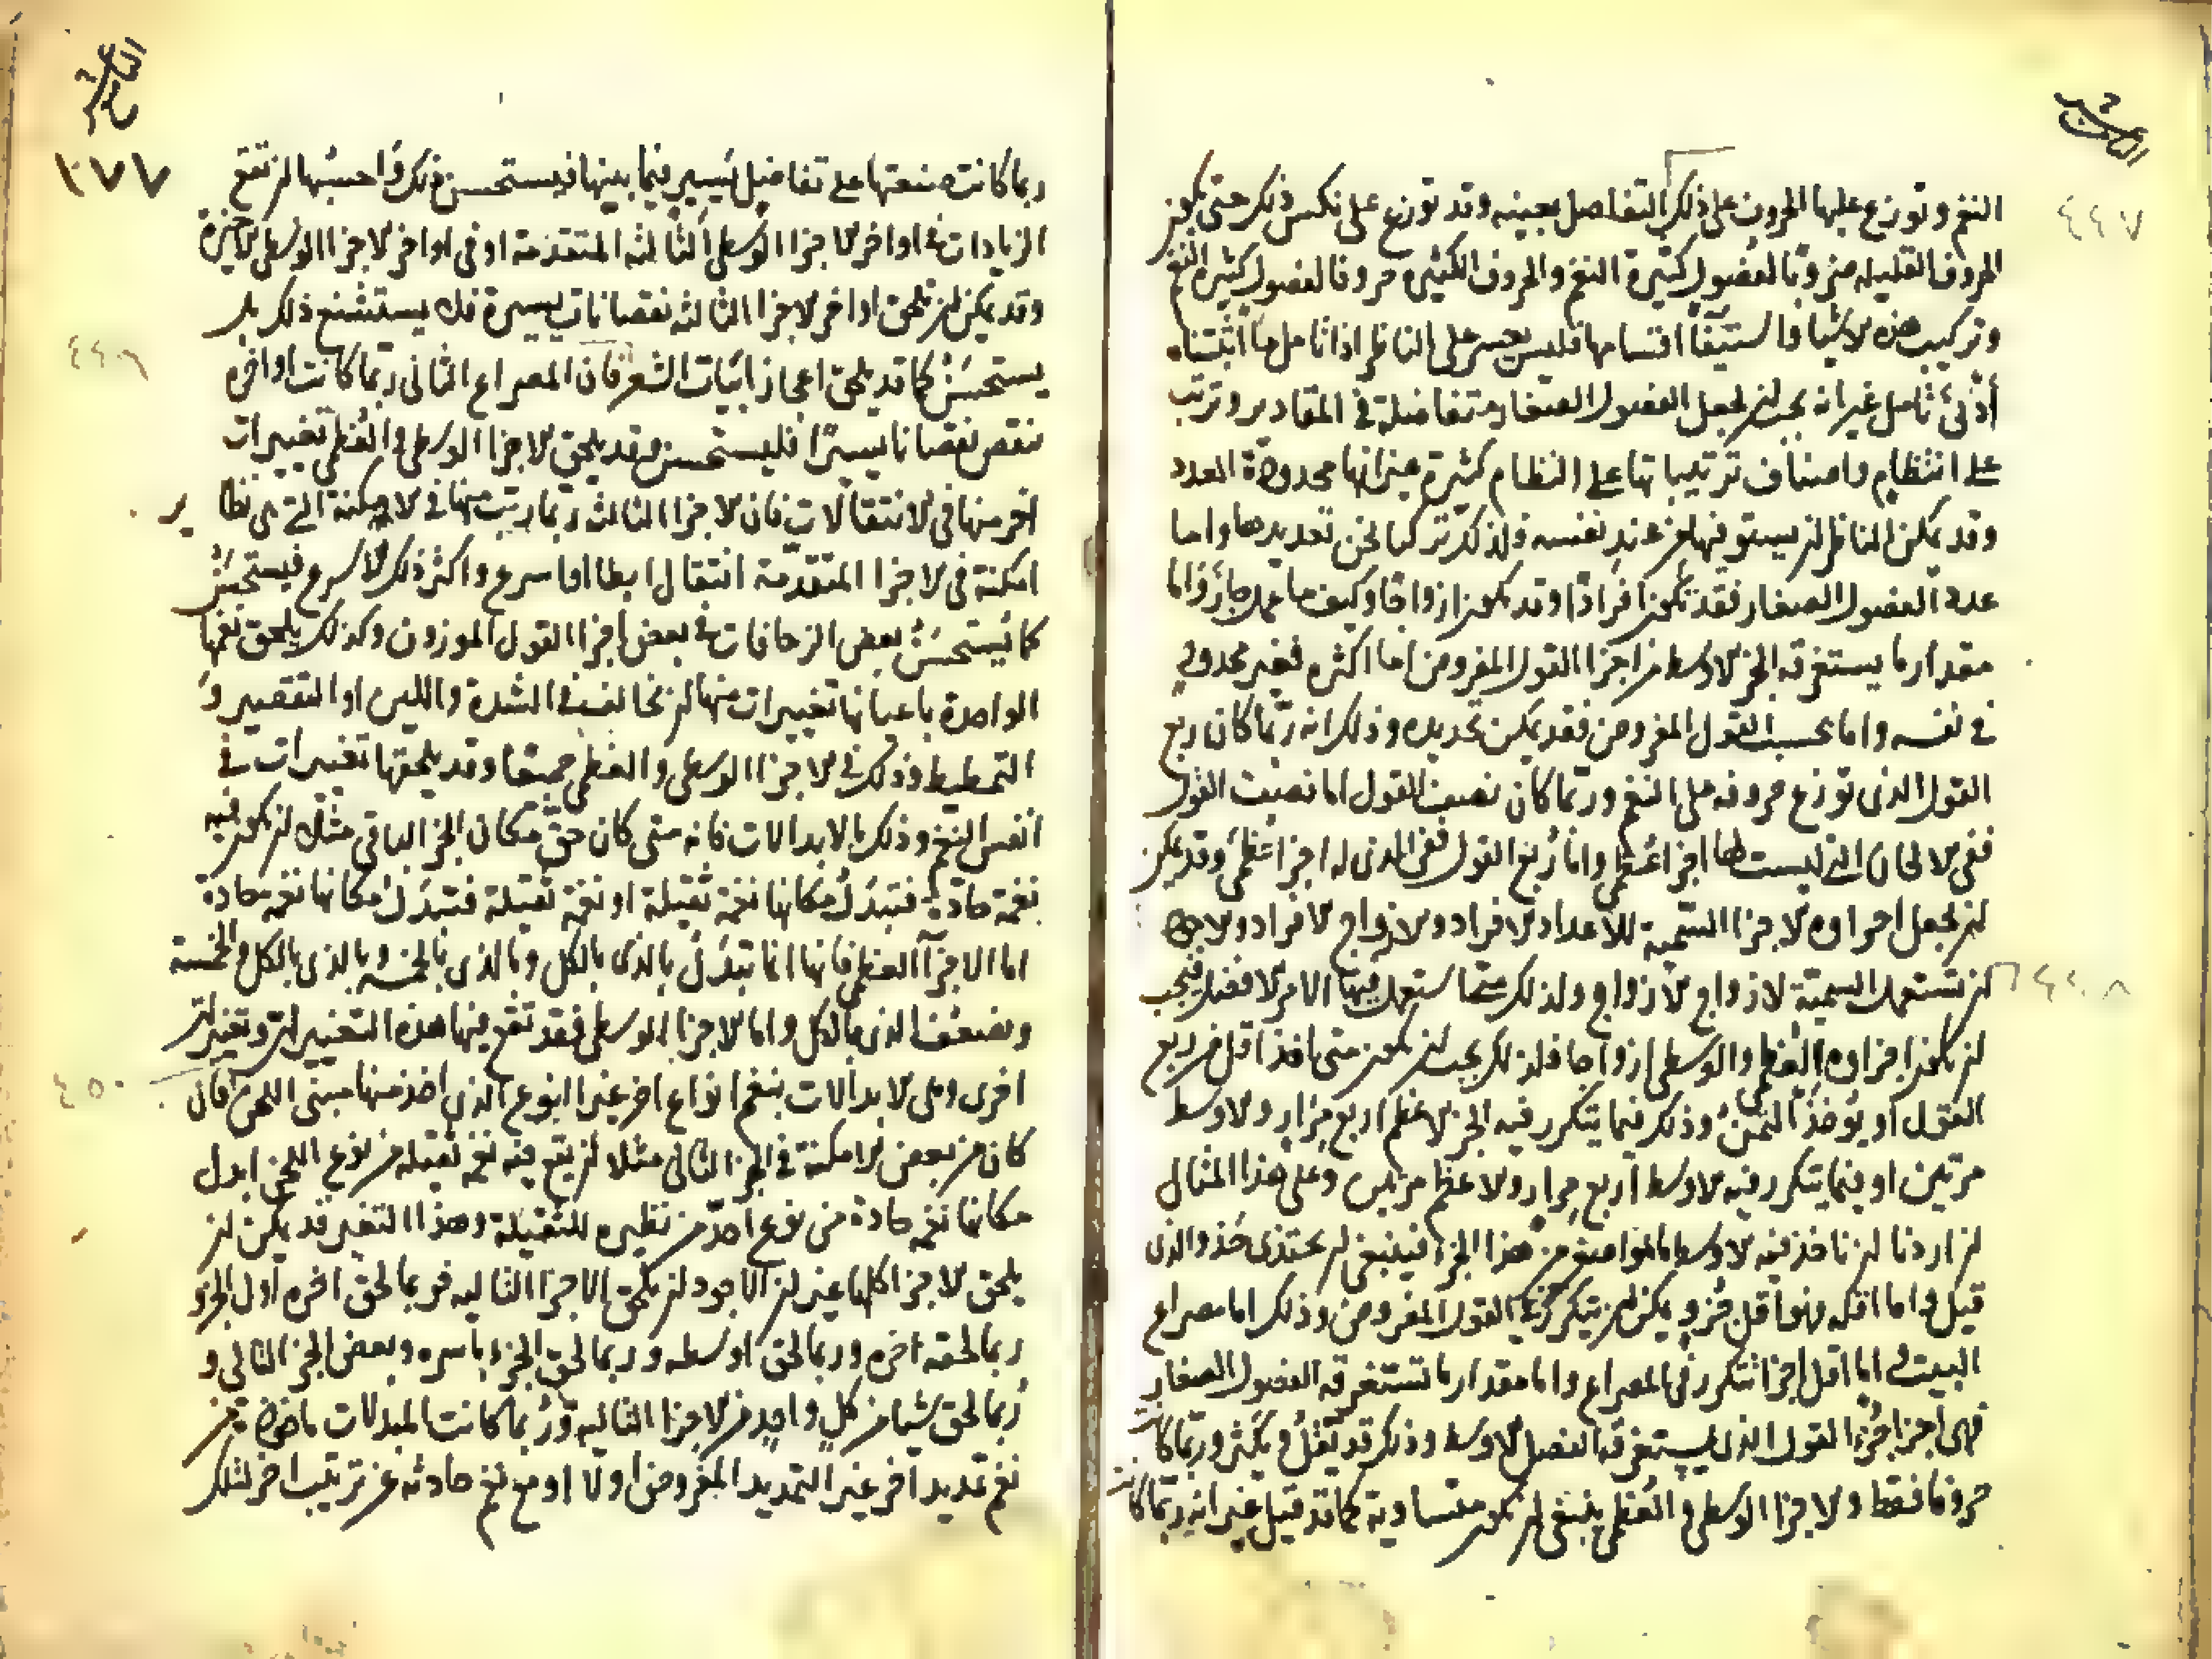 النغم وتوزع عليها الحروف على ذلك التفاصل بعينه وقد توزع على نكس ذلك حتى تكون
الحروف القليله مزوبا لفصول كثيرة النغم والحروف الكثيره حروفا لفصول كثيرة النغم
وتركيب هذه الاشيا واستيفا اقسامها فليس يعسر على الناظر اذا تامل ما اثبتناه
أدنى تامل غير انه يجب ان نجعل الفصول الصغار متفاضلة في المقادير وترتب
على انتظام واصناف ترتيباتها على النظام كثيرة غير انها محدودة العدد
وقد يمكن الناظر ان يستوفيها من عند نفسه ولذلك تركنا نحن تعديدها واما
عدة الفصول الصغار فقد تكون افرادا وقد تكون ازواجا وكيف ما عمل جاز واما
مقدار ما يستغرقه الجز الاوسط من اجزا القول المفروض اما اكثره فغير محدود
في نفسه واما بحسب القول المفروض فقد يمكن تحديده وذلك انه ربما كان ربع
القول الذى توزع حروفه على النغم وربما كان نصف القول اما نصف القول
ففي الالحان التي ليست لها اجزا عظمى واما ربع القول ففي الذى له اجزا عظمى وقد يمكن
ان نجعل اجزاوه الاجزا السمية للاعداد الافراد والازواج الافراد والاجود
ان تستعمل السمية لازواج الازواج ولذلك متى ما استعمل فيها الامر الافضل فيجب
ان تكون اجزاوه العظمى والوسطى ازواجا فلذلك يجب ان تكون متى ما اخذ اقل من ربع
القول او يوخذ الثمن وذلك فيما يتكرر فيه الجز الاعظم اربع مرار والاوسط
مرتين او فيما يتكرر فيه الاوسط اربع مرار والاعظم مرتين وعلى هذا المثال
ان اردنا ان ناخذ فيه الاوسط من هذا الجز فينبغي ان يحتذى حذو الذى
قيل واما اقله فهو اقل جزو يمكن ان يتكرر في القول المفروض وذلك اما مصراع
البيت واما اقل اجزا تتكرر في المصراع واما مقدار ما تستغرقه الفصول الصغار
فهي اجزا جزء القول الذى يستغرقه الفصل الاوسط وذلك قد يقل ويكثر وربما كانت
حروفا فقط والاجزا الوسطى والعظمى ينبغي ان تكون متساوية كما قد قيل غير انه ربما كانت
٤٤٧
٤٤٨
ربما كانت صنعتها على تفاضل يسير فيما بينها فيستحسن ذلك واحسنها ان تقع
الزيادات في اواخر الاجزا الوسطى الثالثه المتقدمة او في اواخر الاجزا الوسطى الاخيرة
وقد يمكن ان تلحق اواخر الاجزا الثالثه نقصانات يسيرة فلا يستشنع ذلك بل
يستحسن كما قد يلحق اعجاز ابيات الشعر فان المصراع الثانى ربما كانت اواخره
تنقص نقصانا يسيرا فليستحسن وقد يلحق الاجزا الوسطى والعظمى تغييرات
اخر منها في الانتقالات فان الاجزا الثالثه ربما رتبت منها في الامكنة التي هي نظاير
امكنة في الاجزا المتقدمة انتقال ابطا او اسرع واكثر ذلك الاسرع فيستحسن
كما يستحسن بعض الزحافات في بعض اجزا القول الموزون وكذلك يلحق نغمها
الواحدة باعيانها تغييرات منها ان تخالف في الشدة واللين او التقصير و
التمطيط وذلك في الاجزا الوسطى والعظمى جميعا وقد يلحقها تغييرات في
انفس النغم وذلك بالابدالات فانه متى كان حق مكان الجز الباقي مثلا ان تكون فيه
نغمة حادة فتبدل مكانها نغمة ثقيلة او نغمة ثقيلة فتبدل مكانها نغمة حادة
اما الاجزا العظمى فانها انما تبدل بالذى بالكل وبالذى بالخمسة وبالذى بالكل والخمسة
وبضعف الذى بالكل واما الاجزا الوسطى فقد تقع فيها هذه التغييرات وتغييرات
اخرى وهي الابدالات بنغم انواع اخر غير النوع الذى اخذ منها مبنى اللحن فان
كان من بعض الامكنة في الجز الثالى مثلا ان يقع فيه نغم ثقيله من نوع اللحن ابدل
مكانها نغمه حادة من نوع احد من نظيره للثقيلة وهذا التغير قد يمكن ان
يلحق الاجزا كلها غير ان الاجود ان يلحق الاجزا التاليه فربما لحق اخره اول الجزو
ربما لحقه اخره وربما لحق اوسطه وربما لحق الجزء باسره وبعض الجز التالى و
ربما لحق شيا من كل واحد من الاجزا التاليه وربما كانت المبدلات ماخوذة من
نغم تمديد اخر غير التمديد المفروض اولا او مع نغم حادثه عن ترتيب اخر لتلك
١٧٧
٤٤٩
٤٥٠